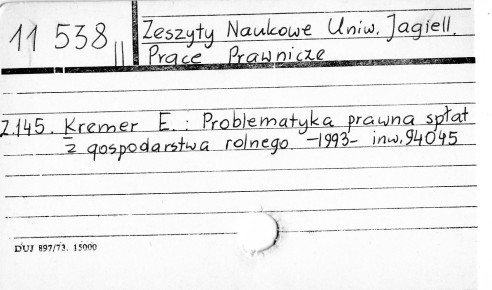 11 538 || Zeszyty Naukowe Uniw. Jagiell.
Prace Prawnicze
Z.145. Kremer E. : Problematyka prawna spłat
z gospodarstwa rolnego. -1993- inw. 94045
DUJ 897/73. 15000